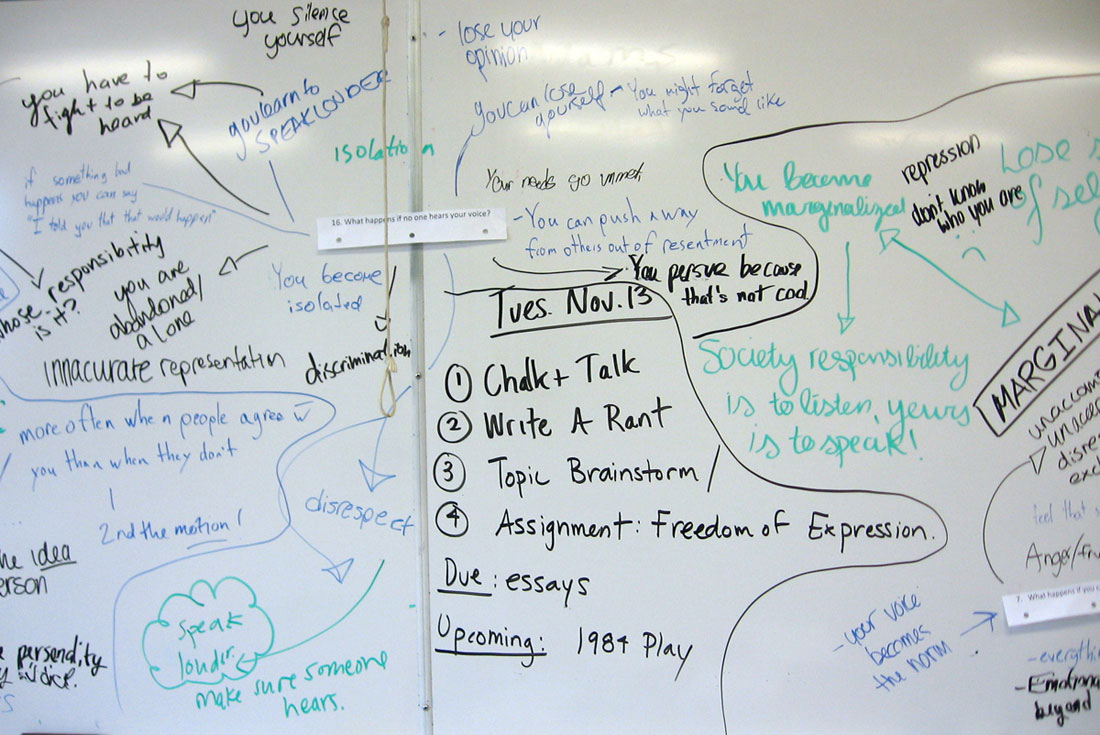 you silence
yourself
- lose your
opinion
you have to
fight to be
heard
you learn to
SPEAK LOUDER
you can lose
yourself - You might forget
what you sound like
isolation
if something bad
happens you can say
"I told you that that would happen"
Your needs go unmet
16. What happens if no one hears your voice?
- You can push away
from others out of resentment
You persue because
that's not cool
You Become
marginalized
repression
don't know
who you are
Lose s
of sel
whose responsibility
is it?
you are
abandoned/
alone
You become
isolated
innacurate representation
discrimination
more often when people agree w
you than when they don't
2nd the motion!
disrespect
speak
louder.
make sure someone
hears.
he idea
erson
personality
Tues. Nov. 13
1 Chalk + Talk
2 Write A Rant
3 Topic Brainstorm /
4 Assignment: Freedom of Expression.
Due: essays
Upcoming: 1984 Play
Society responsibility
is to listen, yours
is to speak!
MARGINA
unaccom
unaccep
disres
exc
feel that s
Anger/fru
7. What happens if you c
- your voice
becomes
the norm
- everythin
- Emotiona
beyond